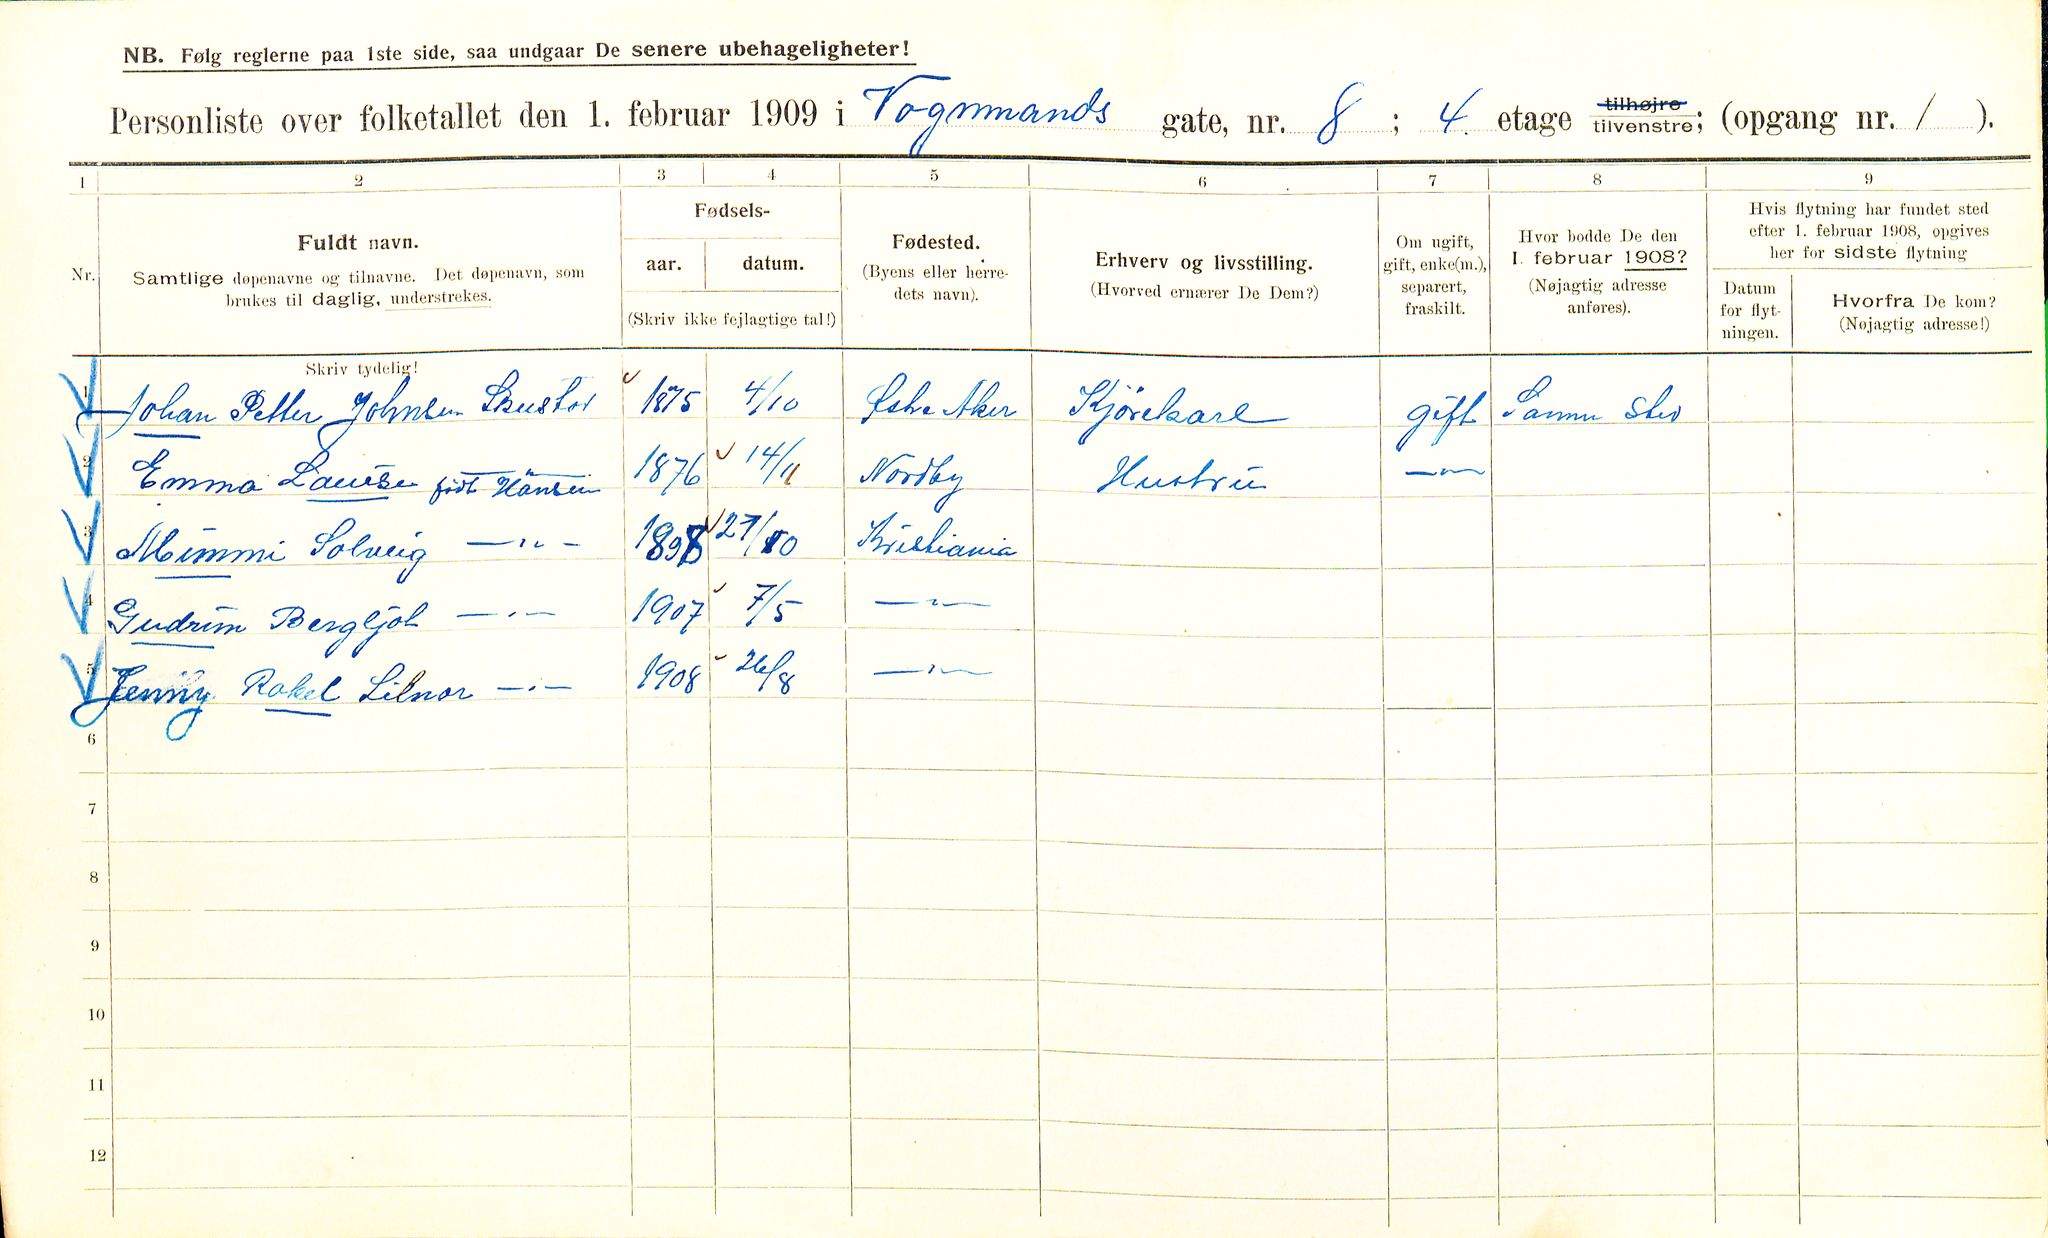 NB. Følg reglerne paa 1ste side, saa undgaar De senere ubehageligheter!
Personliste over folketallet den 1. februar 1909 i Vognmands gate, nr. 8 ; 4. etage tilhøjre tilvenstre; (opgang nr. 1 ).
1 2 3 4 5 6 7 8 9
Nr.
Fuldt navn.
Samtlige døpenavne og tilnavne. Det døpenavn, som
brukes til daglig, understrekes.
Fødsels-
aar. datum.
(Skriv ikke fejlagtige tal!)
Fødested.
(Byens eller herre-
dets navn).
Erhverv og livsstilling.
(Hvorved ernærer De Dem?)
Om ugift,
gift, enke(m.),
separert,
fraskilt.
Hvor bodde De den
1. februar 1908?
(Nøjagtig adresse
anføres).
Hvis flytning har fundet sted
efter 1. februar 1908, opgives
her for sidste flytning
Datum
for flyt-
ningen.
Hvorfra De kom?
(Nøjagtig adresse!)
Skriv tydelig!
1 Johan Petter Johnsen 1875 4/10 Østre Aker Kjörekarl gift Samme sted
2 Emma Lauise født Hansen 1876 14/11 Nordby Hustru —"—
3 Mimmi Solveig —"— 1898 27/10 Kristiania
4 Gudrun Bergljot —"— 1907 7/5 —"—
5 Jenny Rakel —"— 1908 26/8 —"—
6
7
8
9
10
11
12